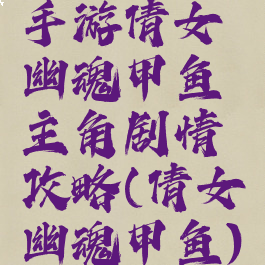 手游倩女
幽魂甲鱼
主角剧情
攻略(倩女
幽魂甲鱼)